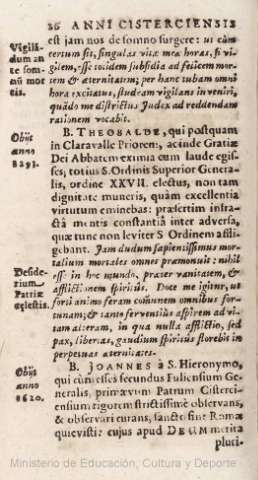 26 ANNI CISTERCIENSIS
est jam nos de somno surgere: ut cùm
Vigili-
dum an-
te som-
nũ mor
tis.
certum sit, singulas vitæ meæ horas, si vi-
gilem, esse totidem subsidia ad felicem mor-
tem & æternitatem; per hanc tubam omni
hora excitatus, studeam vigilans in veniri,
quãdo me districtus Judex ad reddendam
rationem vocabit.
Obijt
anno
B. THEOBALDE, qui postquam
in Claravalle Priorem, ac inde Gratiæ
Dei Abbatem eximia cum laude egis-
ses, totius S. Ordinis Superior Genera-
lis, ordine XXVII. electus, non tam
dignitate muneris, quàm excellentia
virtutum eminebas: præsertim infra-
ctâ mentis constantiâ inter adversa,
quæ tunc non leviter S. Ordinem affli-
gebant. Jam dudum sapientissimus mor-
talium mortales omnes præmonuit: nihil
Deside-
rium
Patriæ
cælestis.
esse in hoc mundo, præter vanitatem, &
afflictionem spiritûs. Doce me igitur, ut
forti animo feram communem omnibus for-
tunam; & tanto ferventiùs aspirem ad vi-
tam alteram, in qua nulla afflictio, sed
pax, libertas, gaudium spiritûs florebit in
perpetuas æternitates.
Obijt
anno
1620.
B. JOANNES à S. Hieronymo,
qui cùm esses secundus Fuliensium Ge-
neralis, primævum Patrum Cisterci-
ensium rigorem strictissimè observans,
& observari curans, sanctè sine Romæ
quievisti: cujus apud DEUM merita
pluri-
Ministerio de Educación, Cultura y Deporte